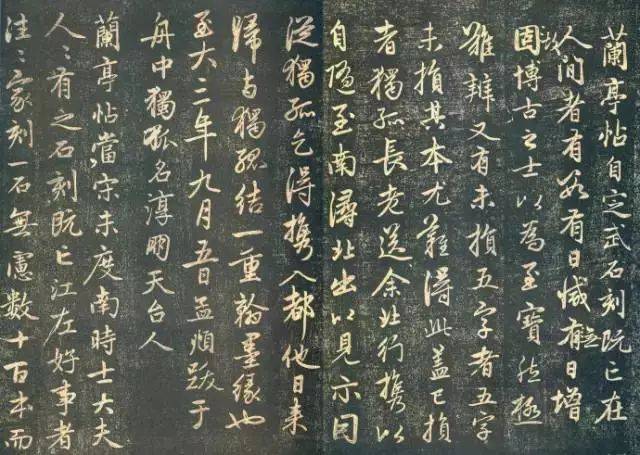 蘭亭帖自定武石刻既亡在
人間者有數有日減無日增
故博古之士以為至寶然極
難辨又有未損五字者五字
未損其本尤難得此蓋已損
者獨孤長老送余北行攜以
自隨至南潯北出以見示因
從獨孤乞得攜入都他日來
歸与獨孤結一重翰墨緣也
至大三年九月五日孟頫跋于
舟中獨孤名淳朋天台人
蘭亭帖當宋未度南時士大夫
人〻有之石刻既亡江左好事者
往〻家刻一石無慮數十百本而